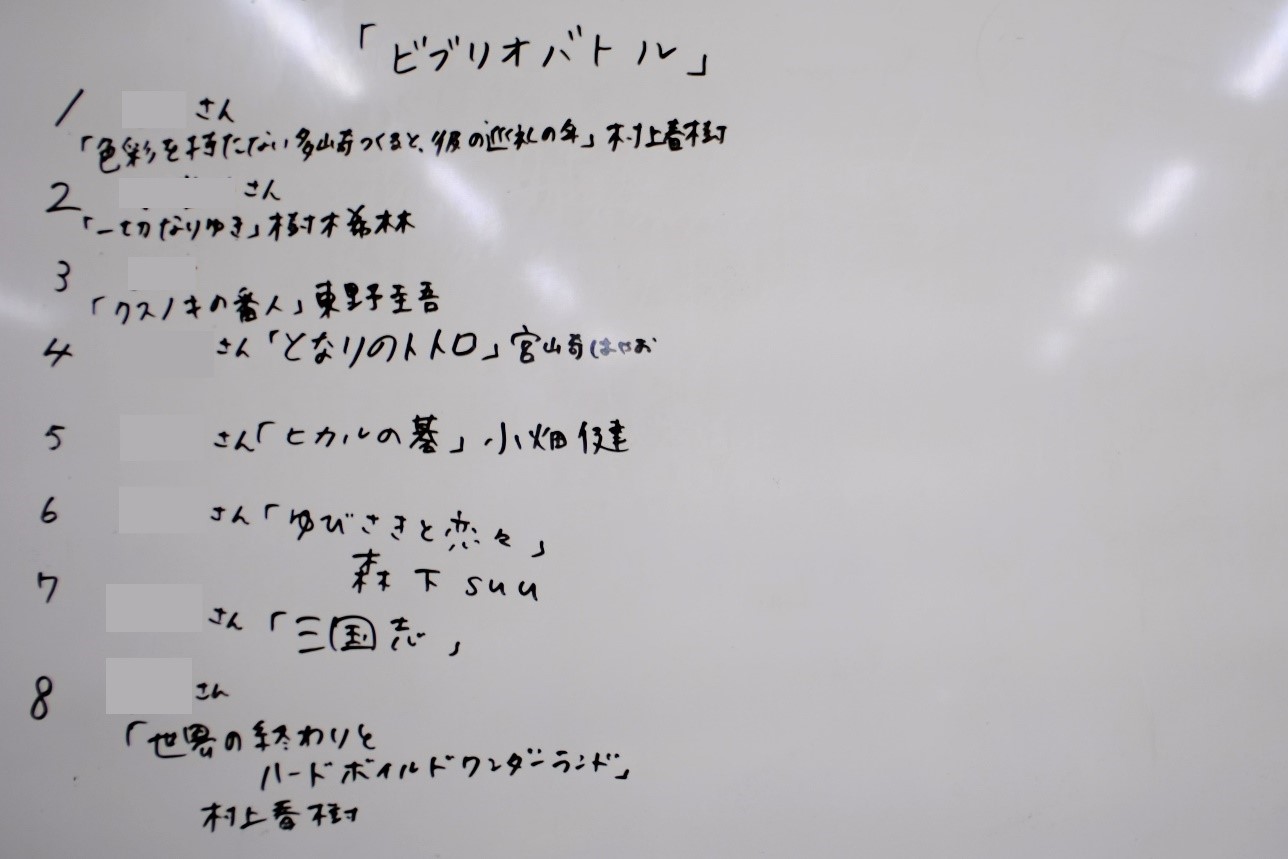 「ビブリオバトル」
1 さん
「色彩を持たない多崎つくると、彼の巡礼の年」村上春樹
2 さん
「一切なりゆき」樹木希林
3
「クスノキの番人」東野圭吾
4 さん「となりのトトロ」宮崎はやお
5 さん「ヒカルの碁」小畑健
6 さん「ゆびさきと恋々」
森下 suu
7 さん「三国志」
8 さん
「世界の終わりと
ハードボイルドワンダーランド」
村上春樹